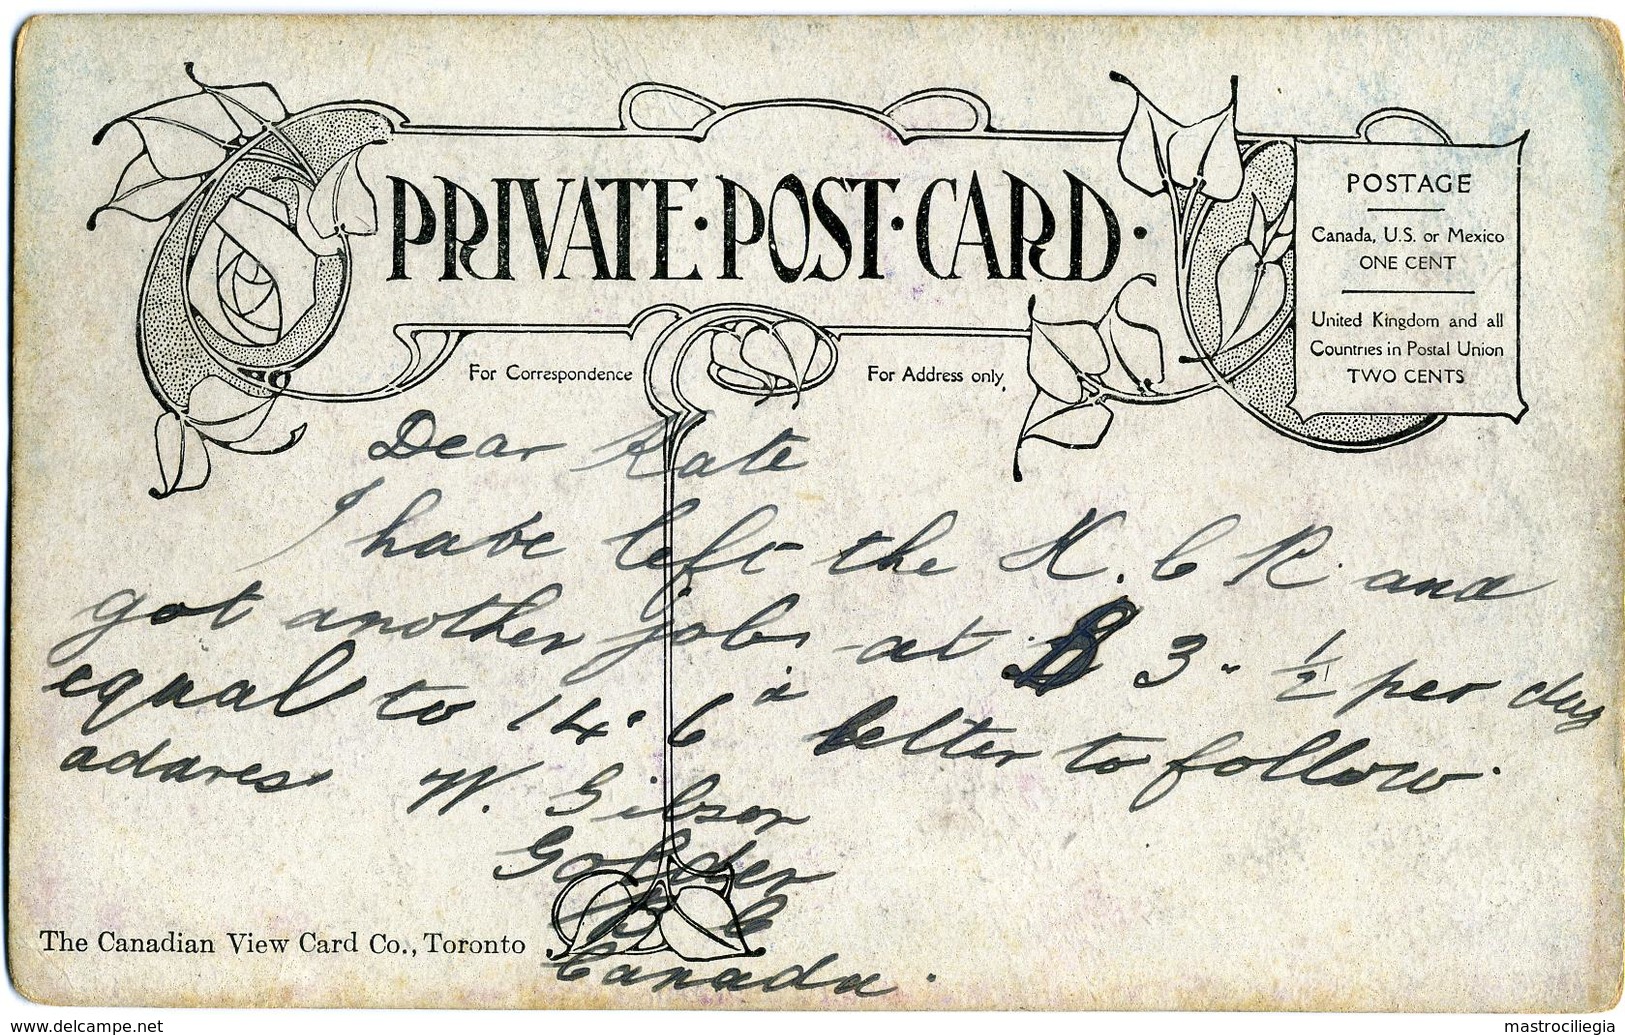 PRIVATE · POST · CARD ·
POSTAGE
Canada, U.S. or Mexico
ONE CENT
United Kingdom and all
Countries in Postal Union
TWO CENTS
For Correspondence
For Address only.
Dear Kate
I have left the K. C R. and
got another job at $ 3 " ½ per day
equal to 14 " 6 d letter to follow.
adares W. Gibson
Golden
B C
Canada.
The Canadian View Card Co., Toronto
www.delcampe.net
mastrociliegia